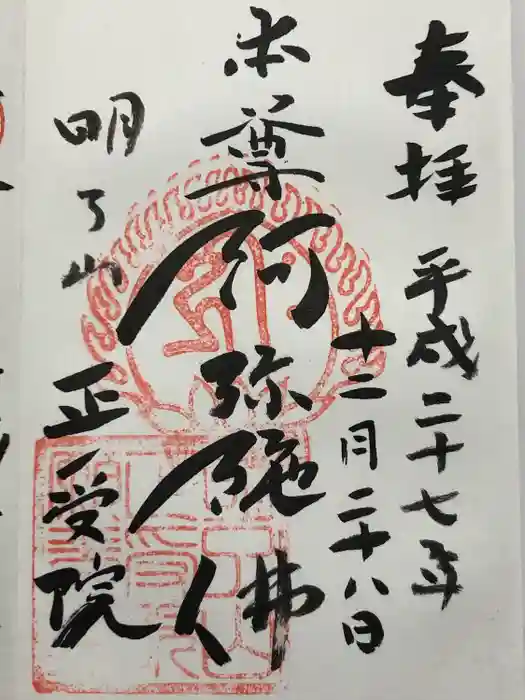 奉拝 平成二十七年
十二月二十八日
本尊阿弥陀佛
明了山
正受院